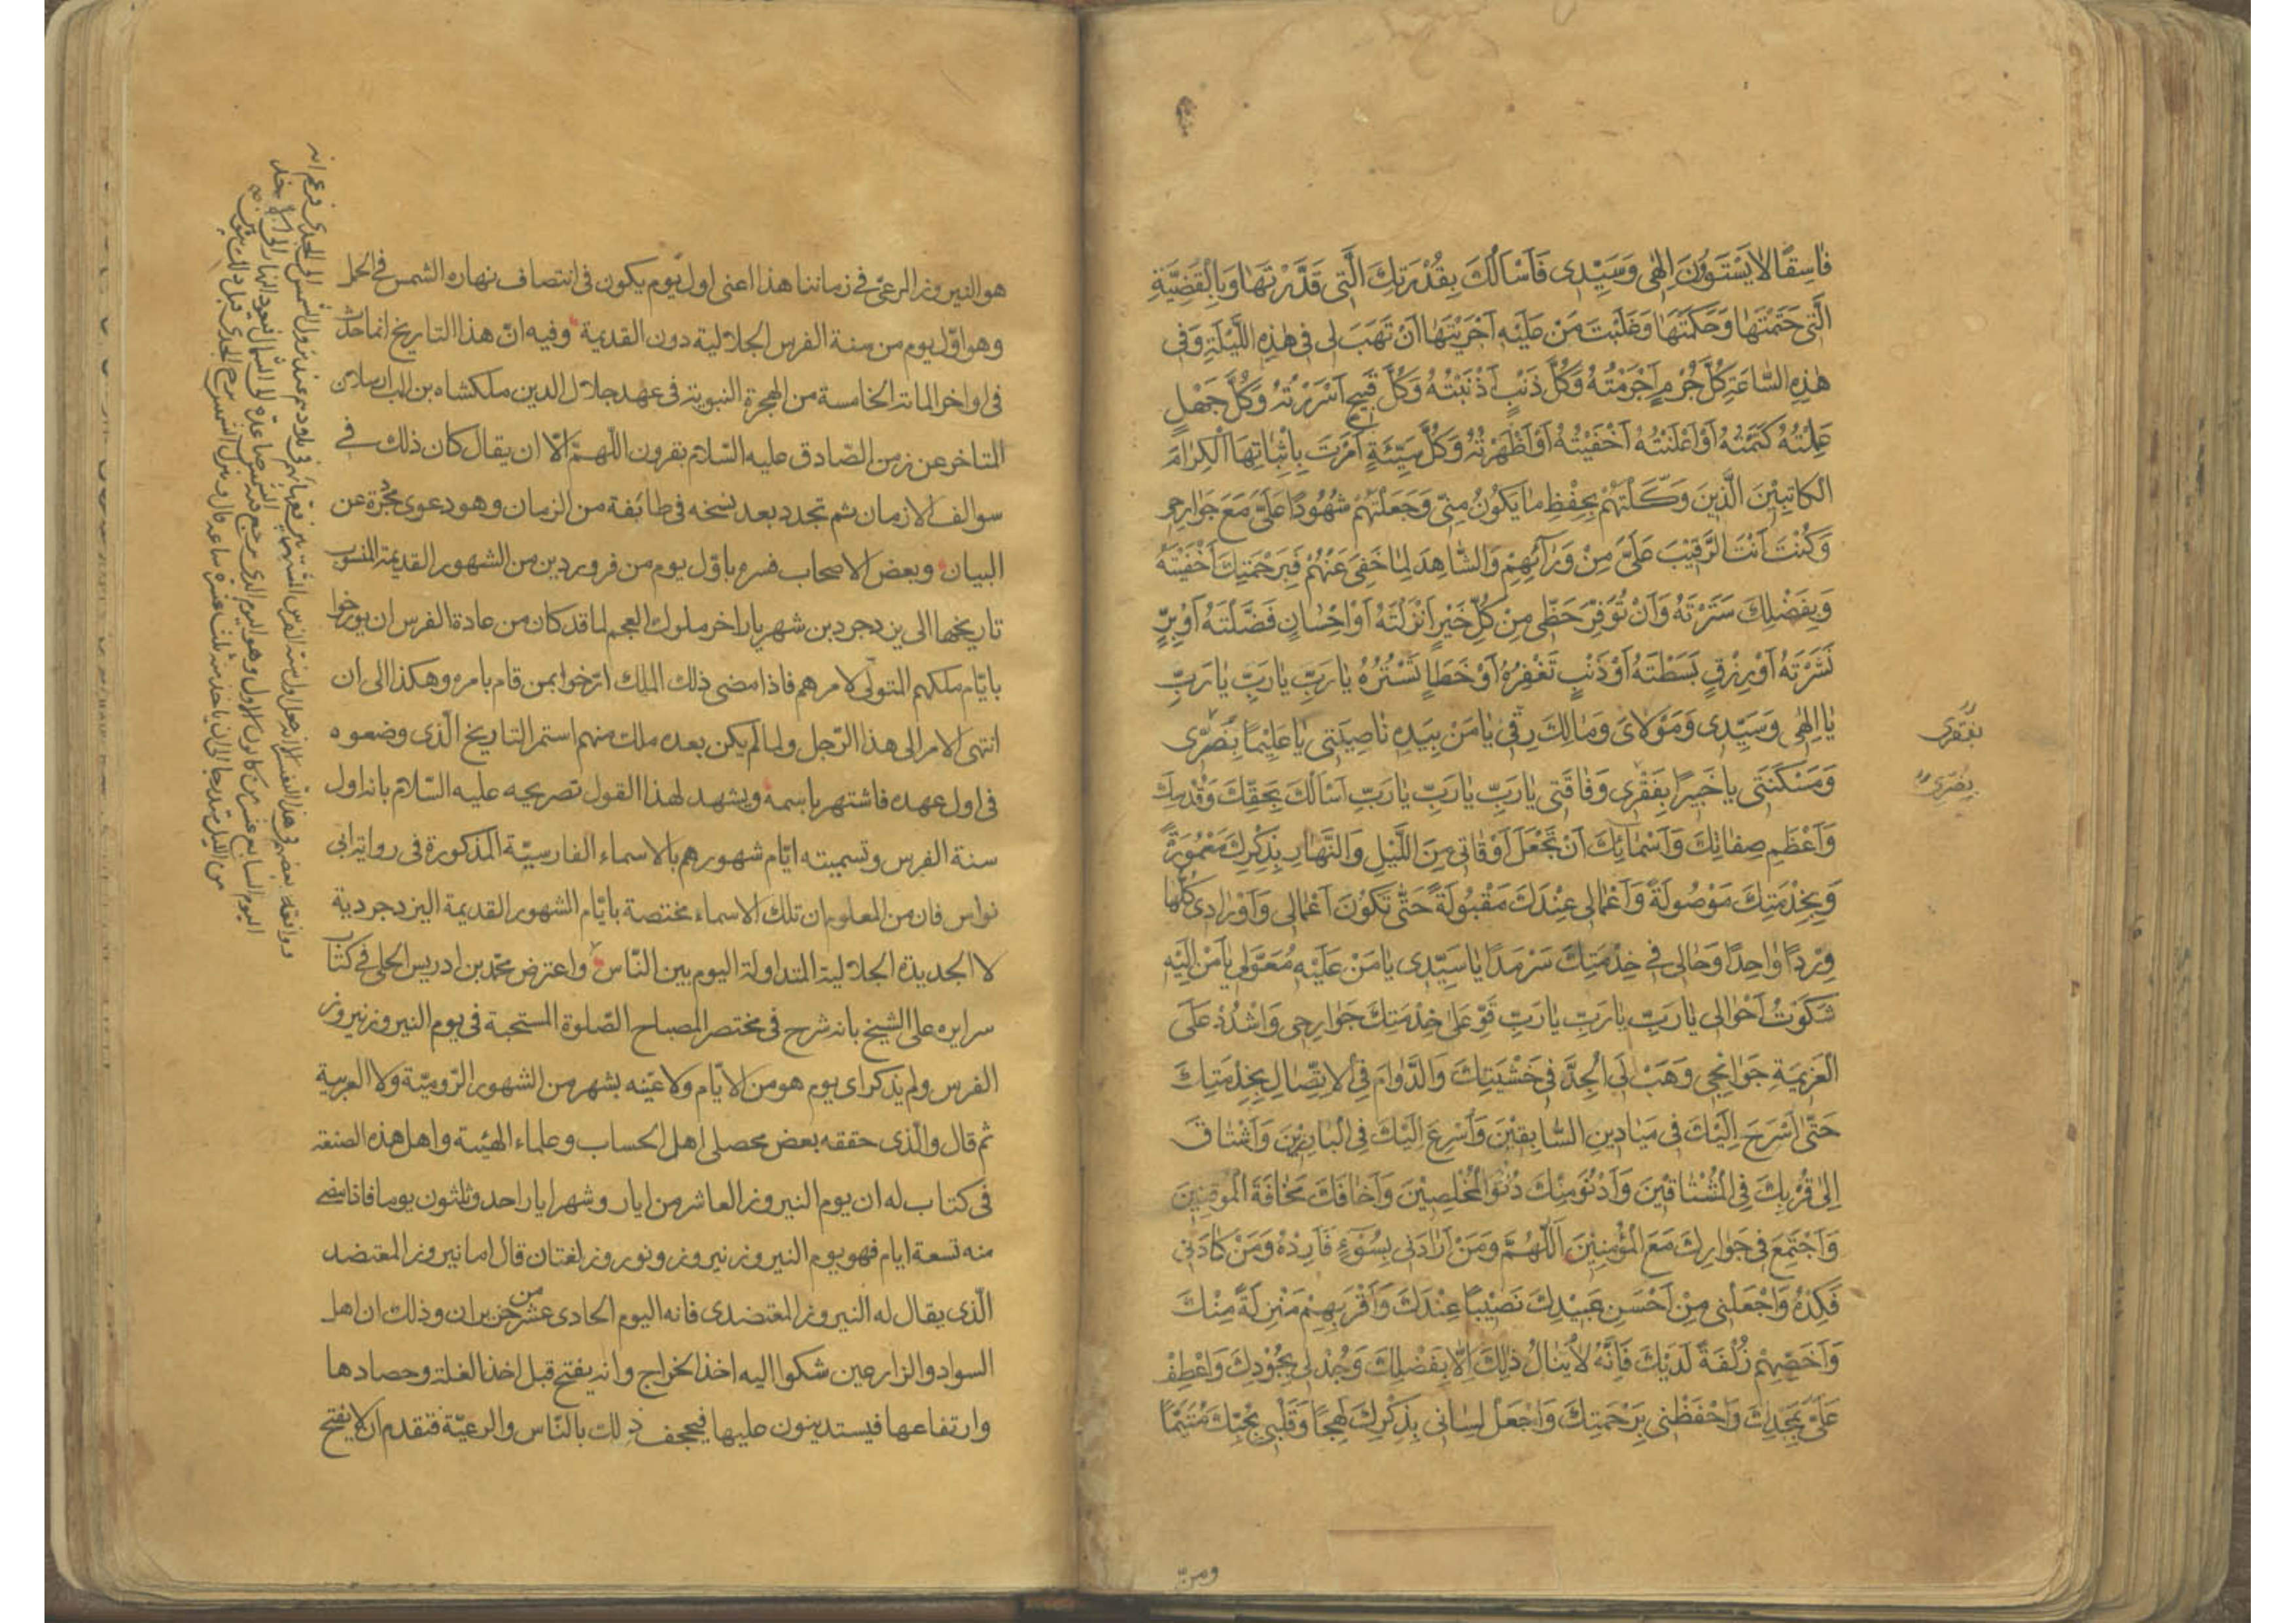 فَاسِقًا لَا يَسْتَوُونَ اِلٰهِى وَسَيِّدِى فَاَسْاَلُكَ بِقُدْرَتِكَ الَّتِى قَدَّرْتَهَا وَبِالْقَضِيَّةِ
الَّتِى حَتَمْتَهَا وَحَكَمْتَهَا وَغَلَبْتَ مَنْ عَلَيْهِ اَجْرَيْتَهَا اَنْ تَهَبَ لِى فِى هٰذِهِ اللَّيْلَةِ وَفِى
هٰذِهِ السَّاعَةِ كُلَّ جُرْمٍ اَجْرَمْتُهُ وَكُلَّ ذَنْبٍ اَذْنَبْتُهُ وَكُلَّ قَبِيحٍ اَسْرَرْتُهُ وَكُلَّ جَهْلٍ
عَمِلْتُهُ كَتَمْتُهُ اَوْ اَعْلَنْتُهُ اَخْفَيْتُهُ اَوْ اَظْهَرْتُهُ وَكُلَّ سَيِّئَةٍ اَمَرْتَ بِاِثْبَاتِهَا الْكِرَامَ
الْكَاتِبِيْنَ الَّذِينَ وَكَّلْتَهُمْ بِحِفْظِ مَا يَكُونُ مِنِّى وَجَعَلْتَهُمْ شُهُودًا عَلَىَّ مَعَ جَوَارِحِى
وَكُنْتَ اَنْتَ الرَّقِيْبَ عَلَىَّ مِنْ وَرَآئِهِمْ وَالشَّاهِدَ لِمَا خَفِىَ عَنْهُمْ فَبِرَحْمَتِكَ اَخْفَيْتَهُ
وَبِفَضْلِكَ سَتَرْتَهُ وَاَنْ تُوَفِّرَ حَظِّى مِنْ كُلِّ خَيْرٍ اَنْزَلْتَهُ اَوْ اِحْسَانٍ فَضَّلْتَهُ اَوْ بِرٍّ
نَشَرْتَهُ اَوْ رِزْقٍ بَسَطْتَهُ اَوْ ذَنْبٍ تَغْفِرُهُ اَوْ خَطَاٍ تَسْتُرُهُ يَا رَبِّ يَا رَبِّ يَا رَبِّ
يَا اِلٰهِى وَسَيِّدِى وَمَوْلَاىَ وَمَالِكَ رِقِّى يَا مَنْ بِيَدِهِ نَاصِيَتِى يَا عَلِيْمًا بِضُرِّى
وَمَسْكَنَتِى يَا خَبِيرًا بِفَقْرِى وَفَاقَتِى يَا رَبِّ يَا رَبِّ يَا رَبِّ اَسْاَلُكَ بِحَقِّكَ وَقُدْسِكَ
وَاَعْظَمِ صِفَاتِكَ وَاَسْمَائِكَ اَنْ تَجْعَلَ اَوْقَاتِى مِنَ اللَّيْلِ وَالنَّهَارِ بِذِكْرِكَ مَعْمُورَةً
وَبِخِدْمَتِكَ مَوْصُولَةً وَاَعْمَالِى عِنْدَكَ مَقْبُولَةً حَتَّى تَكُونَ اَعْمَالِى وَاَوْرَادِى كُلُّهَا
وِرْدًا وَاحِدًا وَحَالِى فِى خِدْمَتِكَ سَرْمَدًا يَا سَيِّدِى يَا مَنْ عَلَيْهِ مُعَوَّلِى يَا مَنْ اِلَيْهِ
شَكَوْتُ اَحْوَالِى يَا رَبِّ يَا رَبِّ يَا رَبِّ قَوِّ عَلٰى خِدْمَتِكَ جَوَارِحِى وَاشْدُدْ عَلَى
الْعَزِيْمَةِ جَوَانِحِى وَهَبْ لِىَ الْجِدَّ فِى خَشْيَتِكَ وَالدَّوَامَ فِى الْاِتِّصَالِ بِخِدْمَتِكَ
حَتّٰى اَسْرَحَ اِلَيْكَ فِى مَيَادِينِ السَّابِقِيْنَ وَاُسْرِعَ اِلَيْكَ فِى الْبَارِزِيْنَ وَاَشْتَاقَ
اِلٰى قُرْبِكَ فِى الْمُشْتَاقِيْنَ وَاَدْنُوَ مِنْكَ دُنُوَّ الْمُخْلِصِيْنَ وَاَخَافَكَ مَخَافَةَ الْمُوقِنِيْنَ
وَاَجْتَمِعَ فِى جِوَارِكَ مَعَ الْمُؤْمِنِيْنَ اَللّٰهُمَّ وَمَنْ اَرَادَنِى بِسُوٓءٍ فَاَرِدْهُ وَمَنْ كَادَنِى
فَكِدْهُ وَاجْعَلْنِى مِنْ اَحْسَنِ عَبِيْدِكَ نَصِيْبًا عِنْدَكَ وَاَقْرَبِهِمْ مَنْزِلَةً مِنْكَ
وَاَخَصِّهِمْ زُلْفَةً لَدَيْكَ فَاِنَّهُ لَا يُنَالُ ذٰلِكَ اِلَّا بِفَضْلِكَ وَجُدْ لِى بِجُوْدِكَ وَاعْطِفْ
عَلَىَّ بِمَجْدِكَ وَاحْفَظْنِى بِرَحْمَتِكَ وَاجْعَلْ لِسَانِى بِذِكْرِكَ لَهِجًا وَقَلْبِى بِحُبِّكَ مُتَيَّمًا
بفقرى
بضرى
ومنّ
هو النيروز المرعىّ فى زماننا هذا اعنى اول يوم يكون فى انتصاف نهاره الشمس فى الحمل
وهو اوّل يوم من سنة الفرس الجلالية دون القديمة وفيه انّ هذا التاريخ انما حدث
فى اواخر المائة الخامسة من الهجرة النبوية فى عهد جلال الدين ملكشاه بن الب ارسلان
المتاخر عن زمن الصّادق عليه السّلام بقرون اللّهمّ الّا ان يقال كان ذلك فى
سوالف الازمان ثم تجدد بعد نسخه فى طائفة من الزمان وهو دعوى مجرّدة عن
البيان وبعض الاصحاب فسره باوّل يوم من فروردين من الشهور القديمة المنسوب
تاريخها الى يزدجرد بن شهريار اخر ملوك العجم لما قد كان من عادة الفرس ان يورخوا
بايّام ملكهم المتولّى لامرهم فاذا مضى ذلك الملك ارّخوا بمن قام بامره وهكذا الى ان
انتهى الامر الى هذا الرّجل ولما لم يكن بعده ملك منهم استمر التاريخ الّذى وضعوه
فى اول عهده فاشتهر باسمه ويشهد لهذا القول تصريحه عليه السّلام بانه اول
سنة الفرس وتسميته ايّام شهورهم بالاسماء الفارسيّة المذكورة فى رواية ابى
نواس فان من المعلوم ان تلك الاسماء مختصة بايّام الشهور القديمة اليزدجردية
لا الجديدة الجلالية المتداولة اليوم بين النّاس واعترض محمّد بن ادريس الحلى فى كتاب
سرايره على الشيخ بانه شرح فى مختصر المصباح الصّلوة المستحبة فى يوم النيروز نيروز
الفرس ولم يذكر اى يوم هو من الايّام ولا عيّنه بشهر من الشهور الرّوميّة ولا العربية
ثم قال والّذى حققه بعض محصلى اهل الحساب وعلماء الهيئة واهل هذه الصنعة
فى كتاب له ان يوم النيروز العاشر من ايار وشهر ايار احد وثلثون يوما فاذا مضى
منه تسعة ايام فهو يوم النيروز نيروز ونوروز لغتان قال اما نيروز المعتضد
الّذى يقال له النيروز المعتضدى فانه اليوم الحادى عشر من حزيران وذلك ان اهل
السواد والزارعين شكوا اليه اخذ الخراج وانه يفتح قبل اخذ الغلة وحصادها
وارتفاعها فيستدينون عليها فيجحف ذلك بالنّاس والرعيّة فتقدم ان لا يفتح